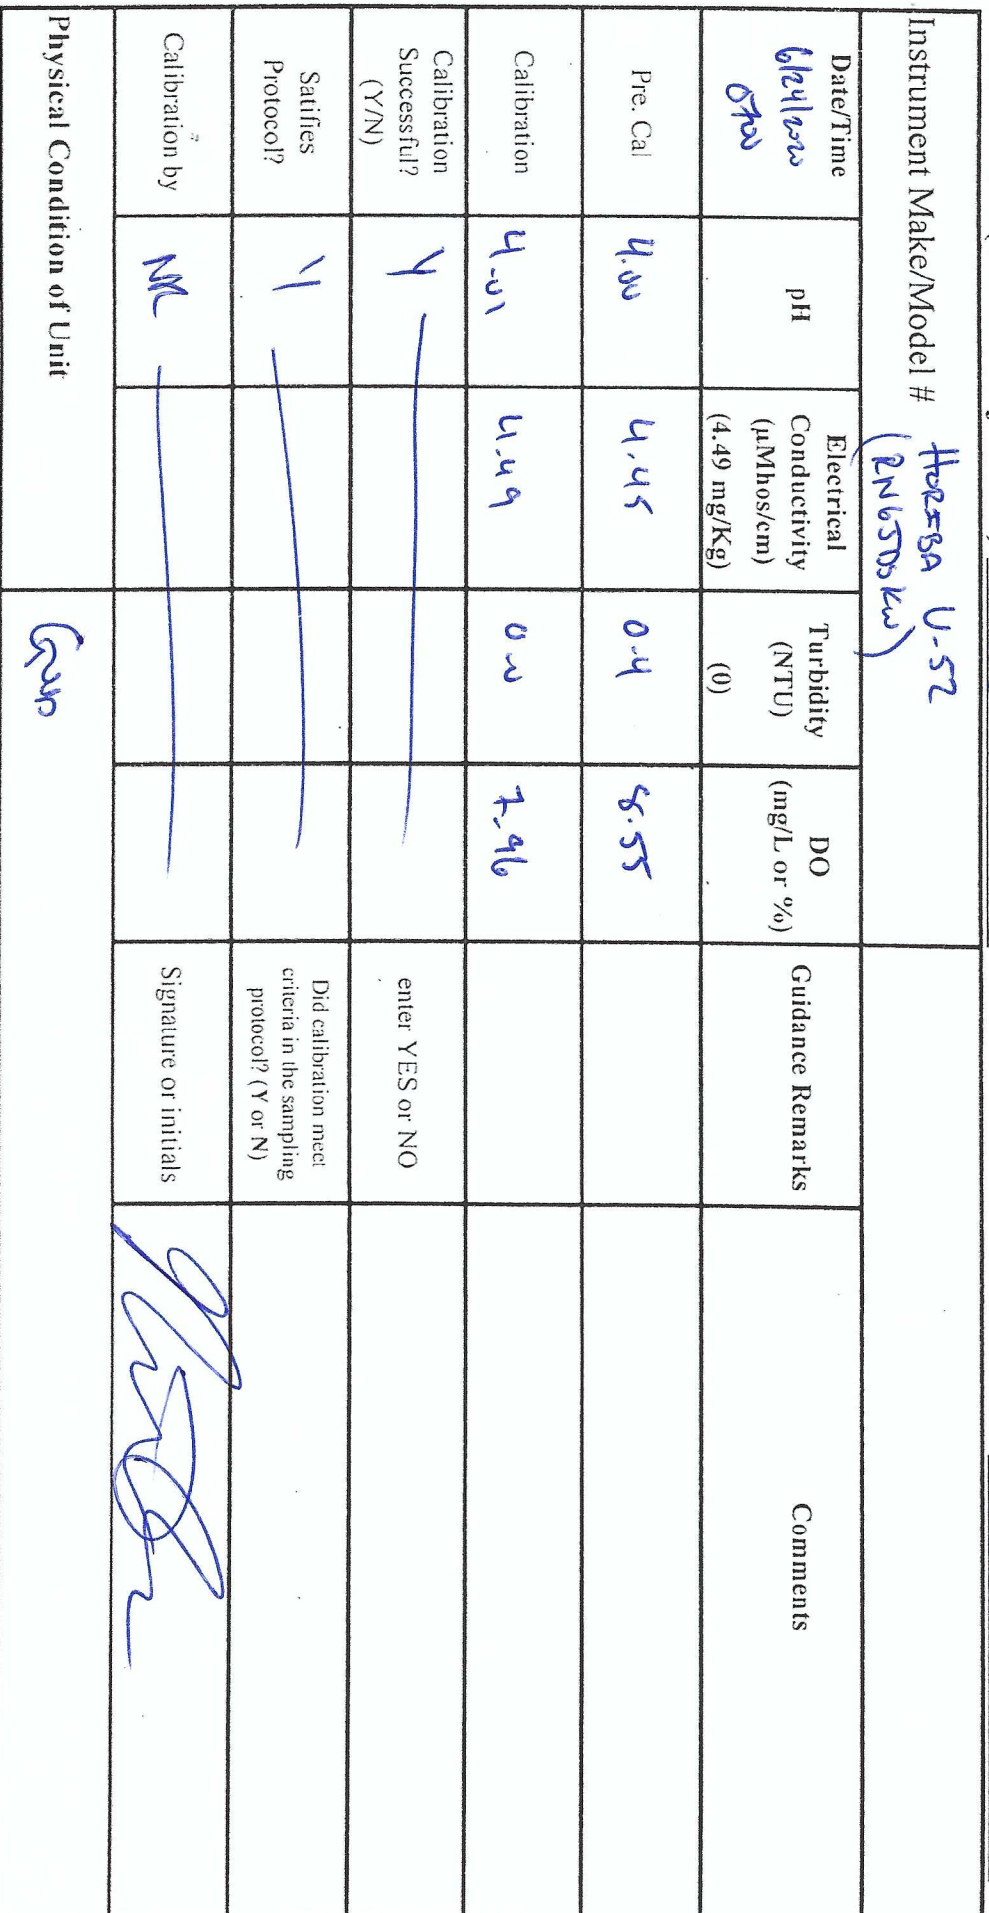 Instrument Make/Model # HORIBA U-52
(RN65JD5KW)
Date/Time
6/24/2020
0700
pH
Electrical
Conductivity
(µMhos/cm)
(4.49 mg/Kg)
Turbidity
(NTU)
(0)
DO
(mg/L or %)
Guidance Remarks
Comments
Pre. Cal
4.00
4.45
0.4
8.55
Calibration
4.01
4.49
0.0
7.96
Calibration
Successful?
(Y/N)
Y
enter YES or NO
Satifies
Protocol?
Y
Did calibration meet
criteria in the sampling
protocol? (Y or N)
Calibration by
Signature or initials
Physical Condition of Unit
Good